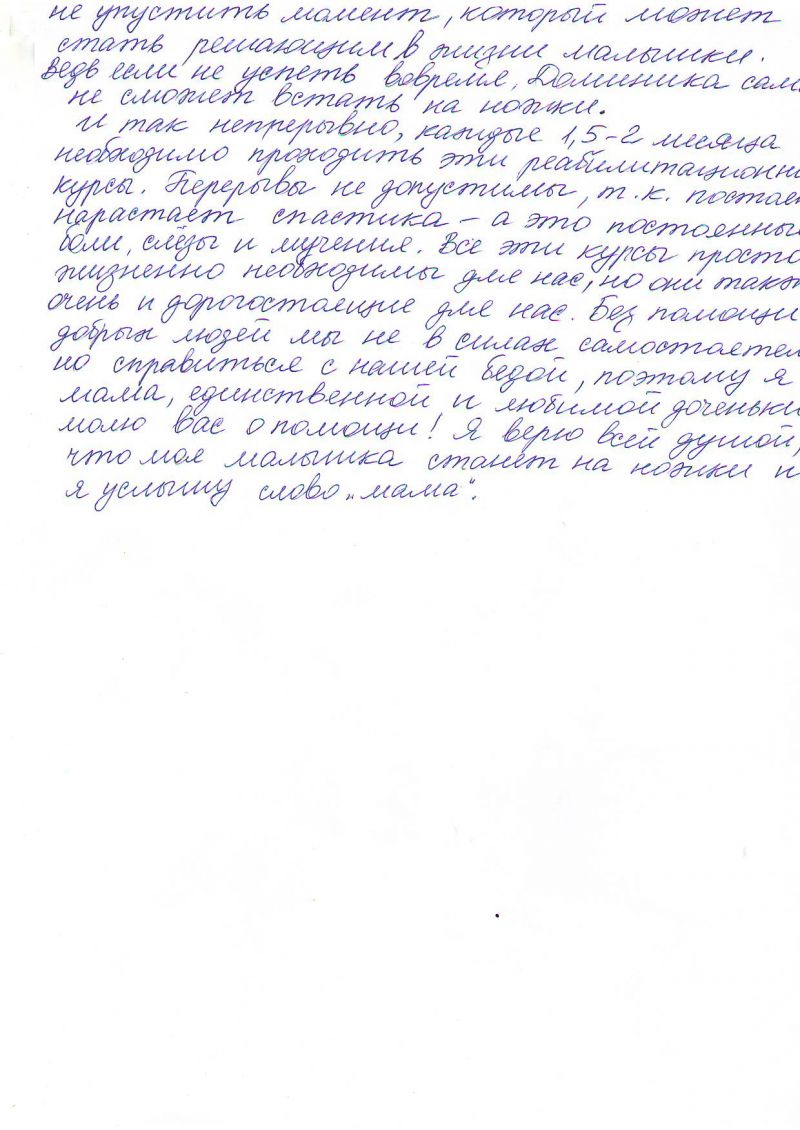 не упустить момент, который может
стать решающим в жизни малышки.
Ведь если не успеть вовремя, Доминика сама
не сможет встать на ножки.
И так непрерывно, каждые 1,5-2 месяца
необходимо проходить эти реабилитационны
курсы. Перерывы не допустимы, т.к. постоен
нарастает спастика – а это постоенные
боли, слёзы и мучения. Все эти курсы просто
жизненно необходимы для нас, но они такж
очень и дорогостоящие для нас. Без помощи
добрых людей мы не в силах самостоятел
но справиться с нашей бедой, поэтому я
мама, единственной и любимой доченьки
молю вас о помощи! Я верю всей душой,
что моя малышка станет на ножки и
я услышу слово „мама“.